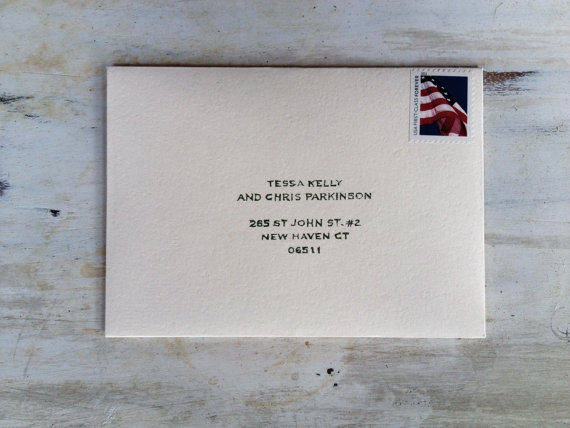 USA FIRST-CLASS FOREVER
TESSA KELLY
AND CHRIS PARKINSON
265 ST JOHN ST. #2
NEW HAVEN CT
06511